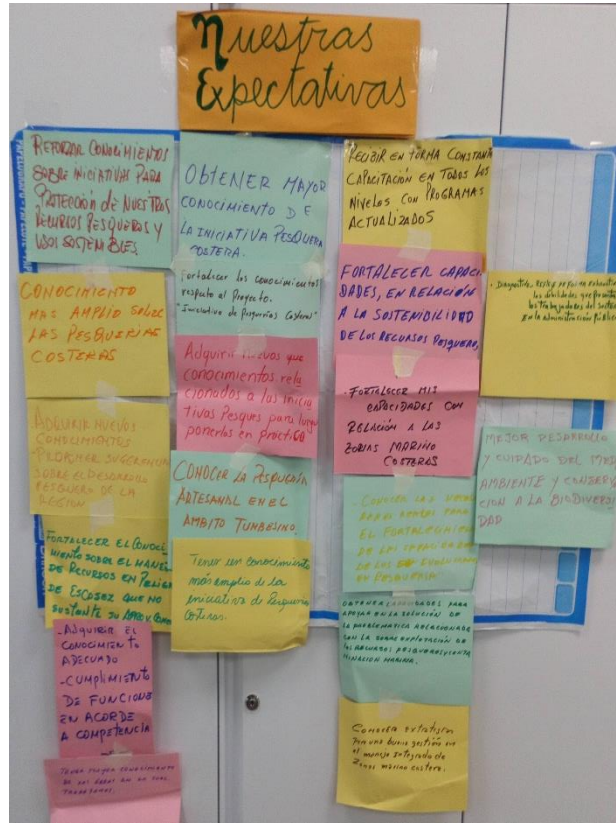 Nuestras
Expectativas
REFORZAR CONOCIMIENTOS
SOBRE INICIATIVAS PARA
PROTECCIÓN de NUESTROS
RECURSOS PESQUEROS Y
USOS SOSTENIBLES.
CONOCIMIENTO
MAS AMPLIO SOBRE
LAS PESQUERIAS
COSTERAS
ADQUIRIR NUEVOS
CONOCIMIENTOS
SOBRE EL DESARROLLO
PESQUERO DE LA
REGION
FORTALECER EL CONOCI-
MIENTO SOBRE EL MANEJO
DE RECURSOS EN PELIGRO
DE ESCASEZ QUE NO
SUSTENTE SU
-ADQUIRIR EL
CONOCIMIENTO
ADECUADO
-CUMPLIMIENTO
DE FUNCIONE
EN ACORDE
A COMPETENCIA
TENER MAYOR CONOCIMIENTO
TRABAJAMOS.
OBTENER MAYOR
CONOCIMIENTO DE
LA INICIATIVA PESQUERA
COSTERA.
Fortalecer los conocimientos
respecto al Proyecto.
"Iniciativa de Pesquerías Costeras"
Adquirir nuevos que
conocimientos rela
cionados a las inicia
tivas Pesques para luego
ponerlos en práctica
CONOCER LA PESQUERIA
ARTESANAL EN EL
AMBITO TUMBESINO.
Tener un conocimiento
más amplio de la
iniciativa de Pesquería
RECIBIR EN FORMA CONSTANTE
CAPACITACIÓN EN TODOS LOS
NIVELES CON PROGRAMAS
ACTUALIZADOS
FORTALECER CAPACI-
DADES, EN RELACIÓN
A LA SOSTENIBILIDAD
DE LOS RECURSOS PESQUEROS.
-FORTALECER MIS
CAPACIDADES CON
RELACIÓN A LAS
ZONAS MARINO
COSTERAS
CONOCER LAS
PARA
EL FORTALECIMIENTO
DE LAS
OBTENER CAPACIDADES PARA
APOYAR EN LA SOLUCIÓN DE
LA PROBLEMATICA RELACIONADA
CON LA SOBRE EXPLOTACIÓN DE
LOS RECURSOS PESQUEROS Y CONTA
MINACION MARINA.
Conocer
para una buena gestión en
el manejo Integrado de
Zonas marino costera.
las debilidades que
los trabajadores del
En la administración pública
MEJOR DESARROLLO
Y CUIDADO DEL MEDIO
AMBIENTE Y CONSERVA
CION A LA BIODIVERSI
DAD